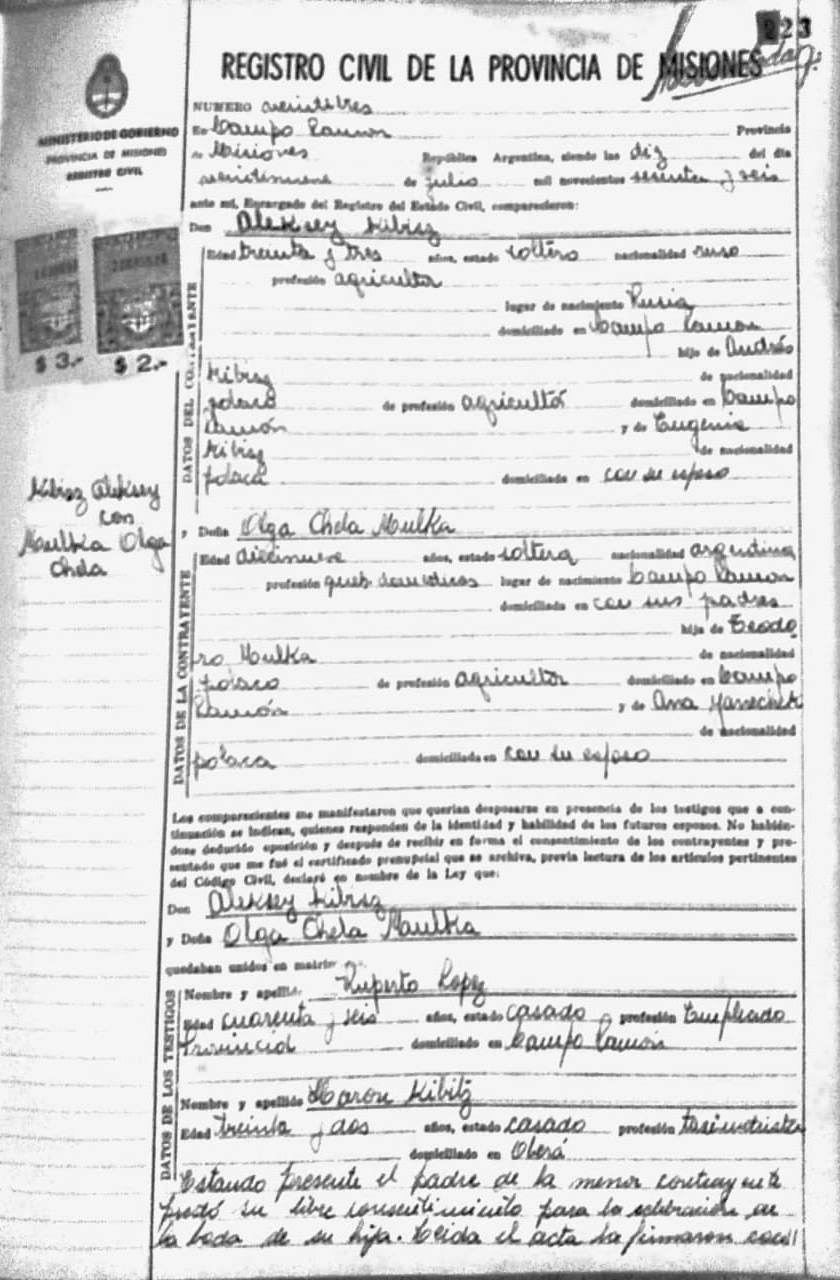 223
REGISTRO CIVIL DE LA PROVINCIA DE MISIONES
MINISTERIO DE GOBIERNO
PROVINCIA DE MISIONES
REGISTRO CIVIL
$ 3.-
$ 2.-
Kibisz Aleksey
con
Maulka Olga
Chela
NUMERO veintitres
En Campo Ramon Provincia
de Misiones República Argentina, siendo las diz del día
veintinueve de julio mil novecientos sesenta y seis
ante mi, Encargado del Registro del Estado Civil, comparecieron:
Don Aleksey Kibisz
DATOS DEL CONTRAYENTE
Edad treinta y tres años, estado soltero nacionalidad ruso
profesión agricultor
lugar de nacimiento Rusia
domiciliado en Campo Ramon
hijo de Andrés
Kibisz de nacionalidad
polaco de profesión agricultor domiciliado en Campo
Ramón y de Eugenia
Kibisz de nacionalidad
polaca domiciliada en con su esposo
y Doña Olga Chela Maulka
DATOS DE LA CONTRAYENTE
Edad diecinueve años, estado soltera nacionalidad argentina
profesión queh domesticos lugar de nacimiento Campo Ramon
domiciliada en con sus padres
hija de Teodo
ro Maulka de nacionalidad
polaco de profesión agricultor domiciliado en Campo
Ramón y de Ana
de nacionalidad
polaca domiciliada en con su esposo
Los comparecientes me manifestaron que querían desposarse en presencia de los testigos que a con-
tinuación se indican, quienes responden de la identidad y habilidad de los futuros esposos. No habién-
dose deducido oposición y después de recibir en forma el consentimiento de los contrayentes y pre-
sentado que me fué el certificado prenupcial que se archiva, previa lectura de los artículos pertinentes
del Código Civil, declaré en nombre de la Ley que:
Don Aleksey Kibisz
y Doña Olga Chela Maulka
quedaban unidos en matri
DATOS DE LOS TESTIGOS
Nombre y apelli Ruperto Lopez
Edad cuarenta y seis años, estado casado profesión Empleado
Provincial domiciliado en Campo Ramón
Nombre y apellido Maron Kibitz
Edad treinta y dos años, estado casado profesión
domiciliado en Oberá
Estando presente el padre de la menor contrayente
prestó su libre consentimiento para la celebración de
la boda de su hija. Leida el acta la firmaron con